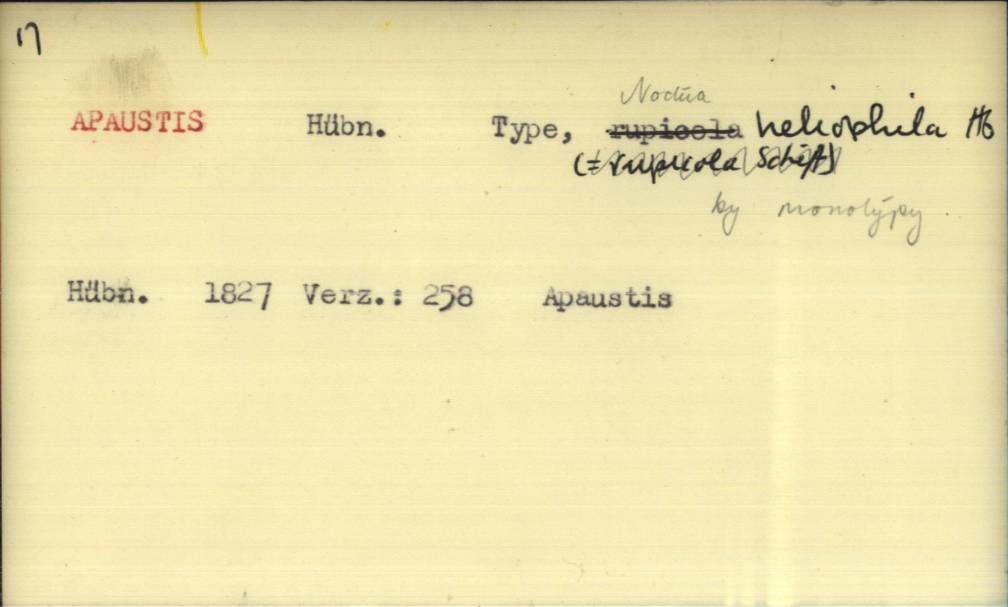 17
Noctua
APAUSTIS Hübn. Type, rupicola heliophila Hb
(= rupicola Schiff)
by monotypy.
Hübn. 1827 Verz.: 258 Apaustis